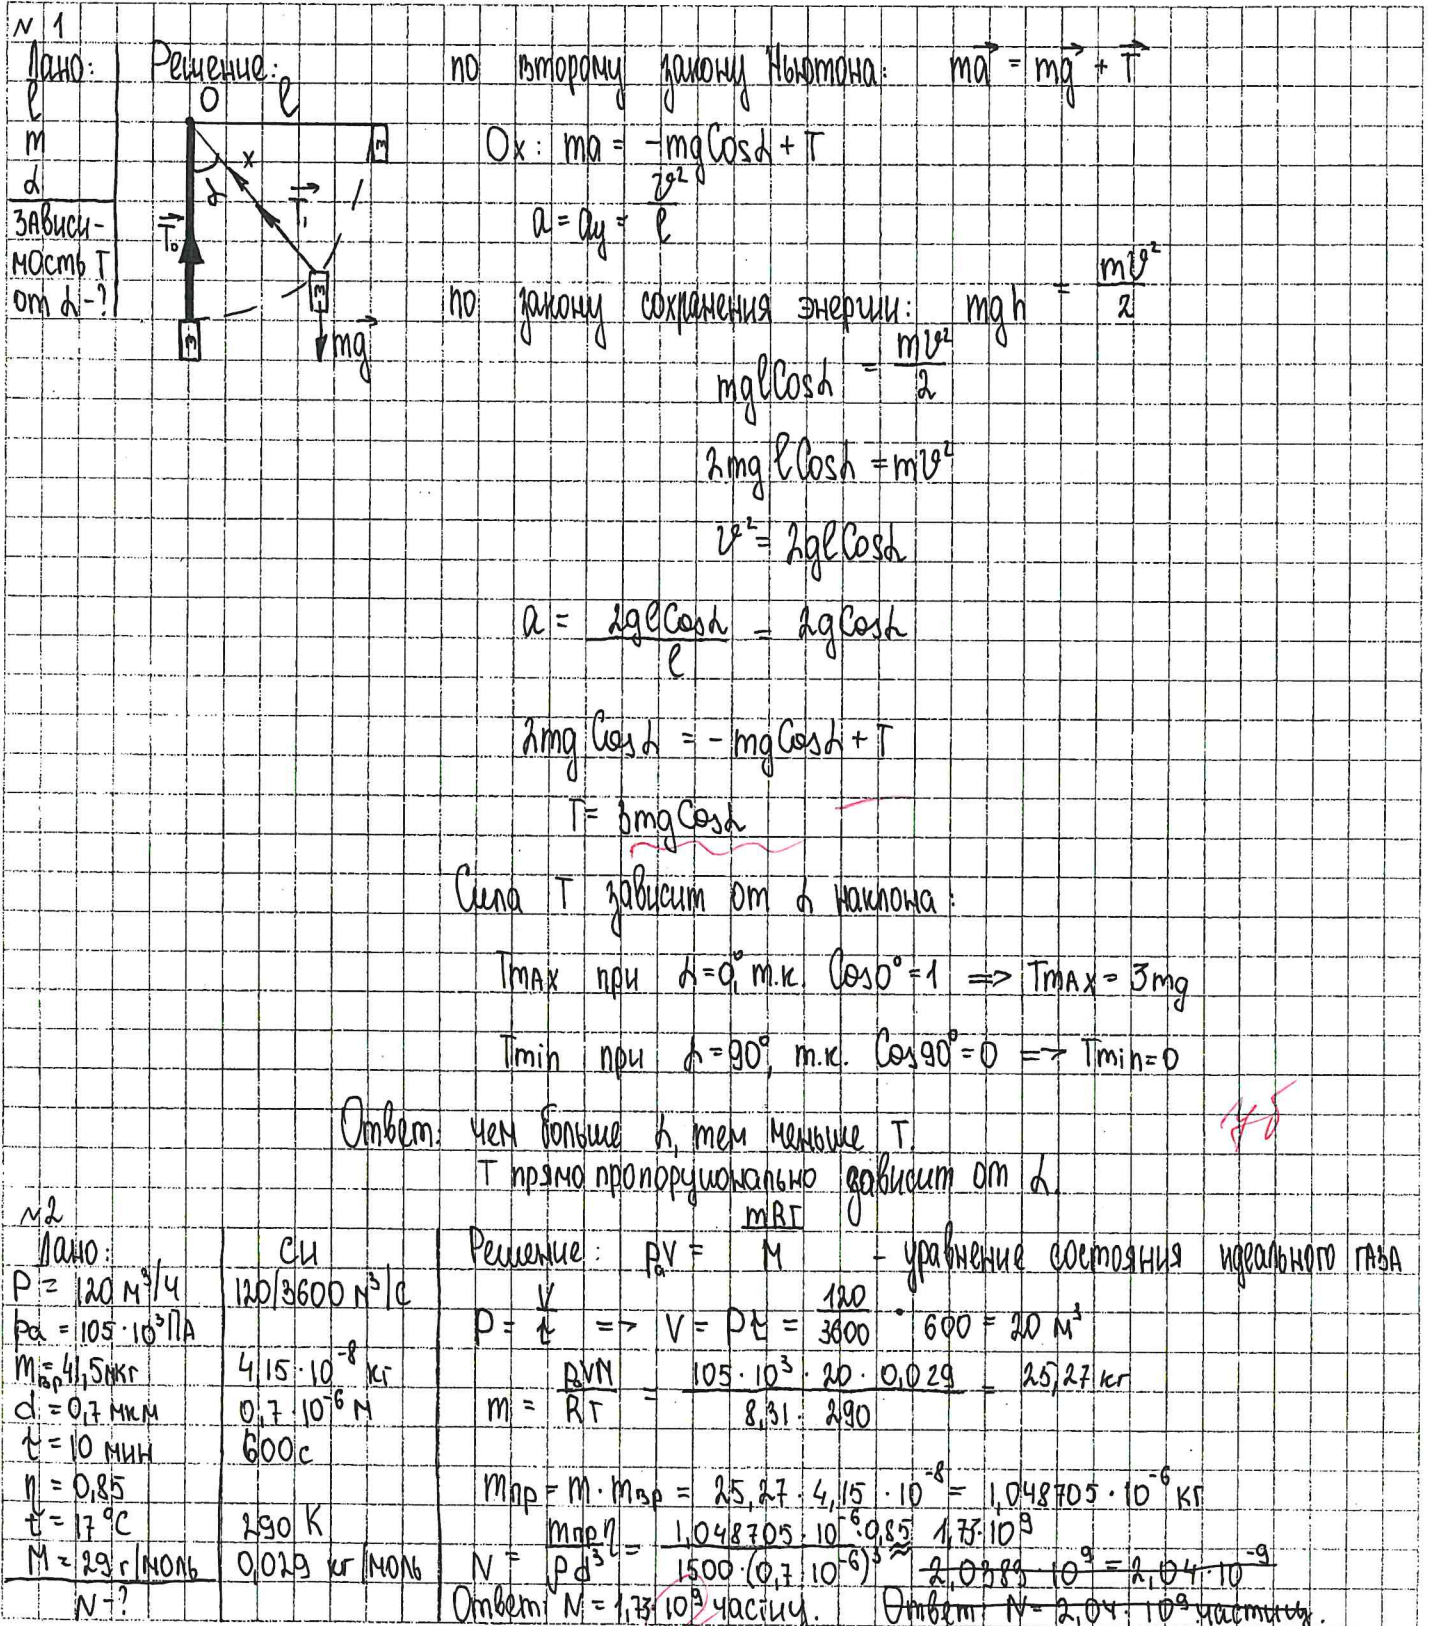 №1
Дано:
l
m
α
зависи-
мость T
от α-?
Решение:
O l
α x T₁ T₀ m m m mg
по второму закону Ньютона: ma = mg + T
Ox: ma = -mgCosα + T
a = aу = v²/l
по закону сохранения энергии: mgh = mv²/2
mglCosα = mv²/2
2mglCosα = mv²
v² = 2glCosα
a = 2glCosα/l = 2gCosα
2mgCosα = -mgCosα + T
T = 3mgCosα
Сила T зависит от α наклона:
Tmax при α=0°, т.к. Cos0°=1 => Tmax = 3mg
Tmin при α=90°, т.к. Cos90°=0 => Tmin=0
Ответ: чем больше α, тем меньше T.
T прямо пропорционально зависит от α.
№2
Дано:
P = 120 м³/ч
pa = 105·10³ Па
mвр = 41,5мкг
d = 0,7 мкм
t = 10 мин
η = 0,85
t = 17°C
M = 29 г/моль
N-?
СИ
120/3600 м³/с
4,15·10⁻⁸ кг
0,7·10⁻⁶ м
600с
290 К
0,029 кг/моль
Решение: paV = mRT/M - уравнение состояния идеального газа
P = V/t => V = Pt = 120/3600 · 600 = 20 м³
m = paVM/RT = 105·10³·20·0,029/8,31·290 = 25,27 кг
mпр = m·mвр = 25,27·4,15·10⁻⁸ = 1,048705·10⁻⁶ кг
N = mпрη/ρd³ = 1,048705·10⁻⁶·0,85/1500·(0,7·10⁻⁶)³ ≈ 1,73·10⁹ 2,0383·10⁹ = 2,04·10⁻⁹
Ответ: N = 1,73·10⁹ частиц. Ответ: N = 2,04·10⁹ частиц.